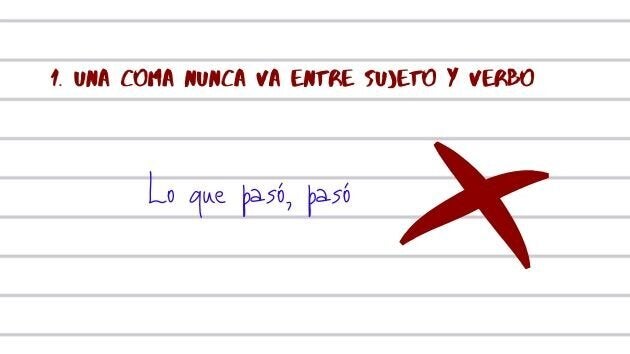 1. UNA COMA NUNCA VA ENTRE SUJETO Y VERBO
Lo que pasó, pasó